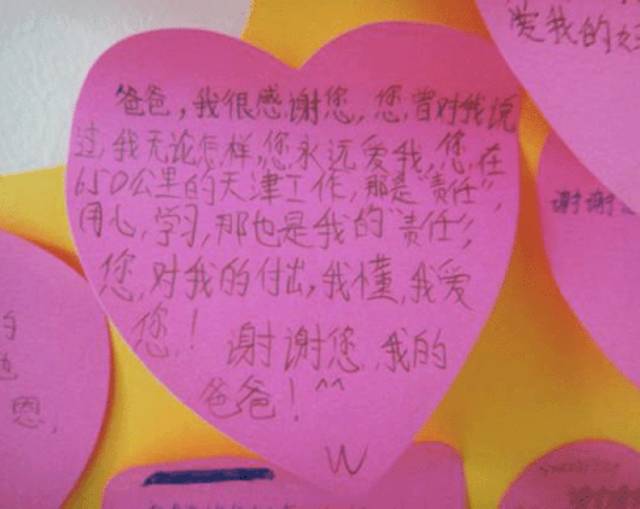 爱我的好
爸爸,我很感谢您,您,曾对我说
过,我无论怎样,您永远爱我,您,在
650公里的天津工作,那是“责任”,
用心,学习,那也是我的“责任”,
您,对我的付出,我懂,我爱
您!谢谢您,我的
爸爸!^^
W
谢谢
的
恩,